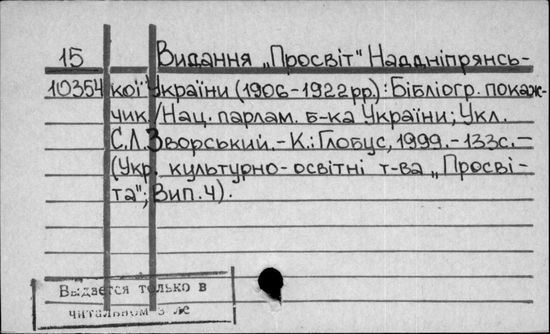 15 Видання „Просвіт" Наддніпрянсь-
10354 кої України (1906-1922рр.): Бібліогр. покаж-
чик. / Нац. парлам. б-ка України; Укл.
С.Л.Зворський.- К.: Глобус, 1999.- 133с.-
(Укр. культурно-освітні т-ва „Просві-
та"; Вип.4).
Выдается только в
читальном з ле